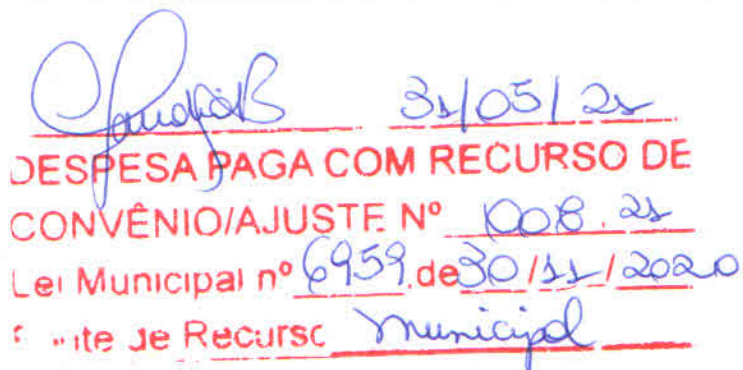 31/05/21
DESPESA PAGA COM RECURSO DE
CONVÊNIO/AJUSTE Nº 008.21
Lei Municipal nº 6959 de 30/11/2020
te de Recurso Municipal